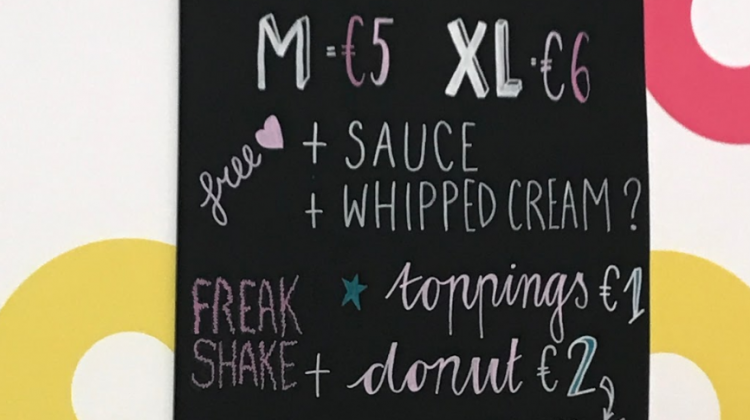 M = €5 XL = €6
free + SAUCE
+ WHIPPED CREAM ?
FREAK * toppings €1
SHAKE + donut €2